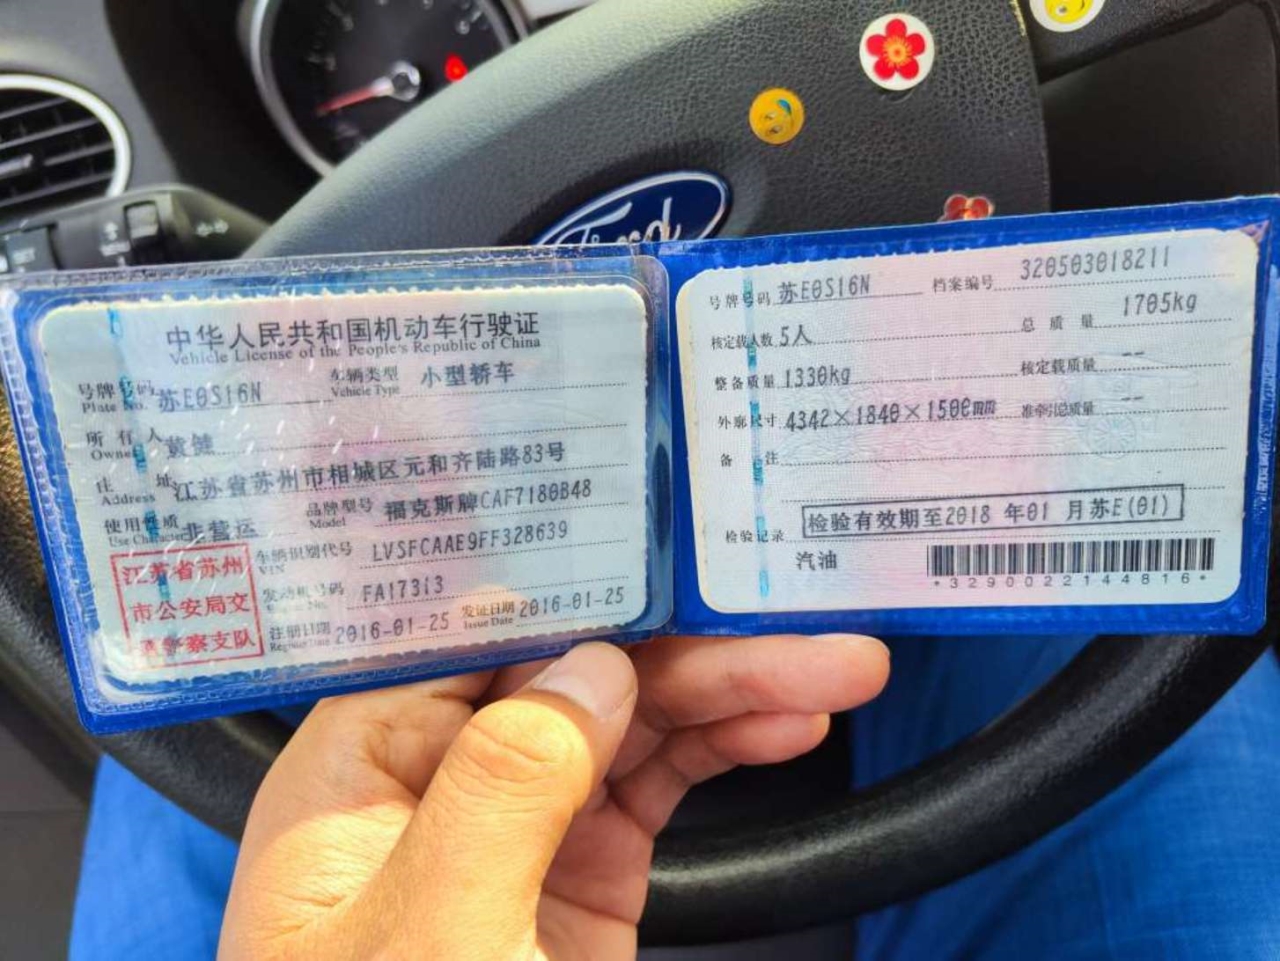 Ford
中华人民共和国机动车行驶证
Vehicle License of the People's Republic of China
号牌号码 苏E0S16N 车辆类型 小型轿车
Plate No. Vehicle Type
所有人 黄健
Owner
住址 江苏省苏州市相城区元和齐陆路83号
Address
使用性质 非营运 品牌型号 福克斯牌CAF7180B48
Use Character Model
江苏省苏州
市公安局交
警察支队
车辆识别代号 LVSFCAAE9FF328639
VIN
发动机号码 FA17313
Engine No.
注册日期 2016-01-25 发证日期 2016-01-25
Register Date Issue Date
号牌号码 苏E0S16N 档案编号 320503018211
核定载人数 5人 总质量 1705kg
整备质量 1330kg 核定载质量 --
外廓尺寸 4342×1840×1500mm 准牵引总质量 --
备注
检验记录 检验有效期至2018 年01 月苏E(01)
汽油
*3290022144816*